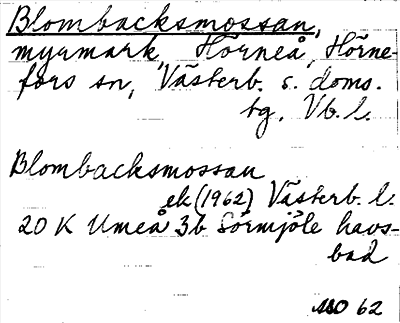 Blombacksmossan,
myrmark, Hörneå, Hörne-
fors sn, Västerb. s. doms.
tg, Vb. l.
Blombacksmossan
ek (1962) Västerb. l.
20 K Umeå 3b Sörmjöle havs-
bad
62